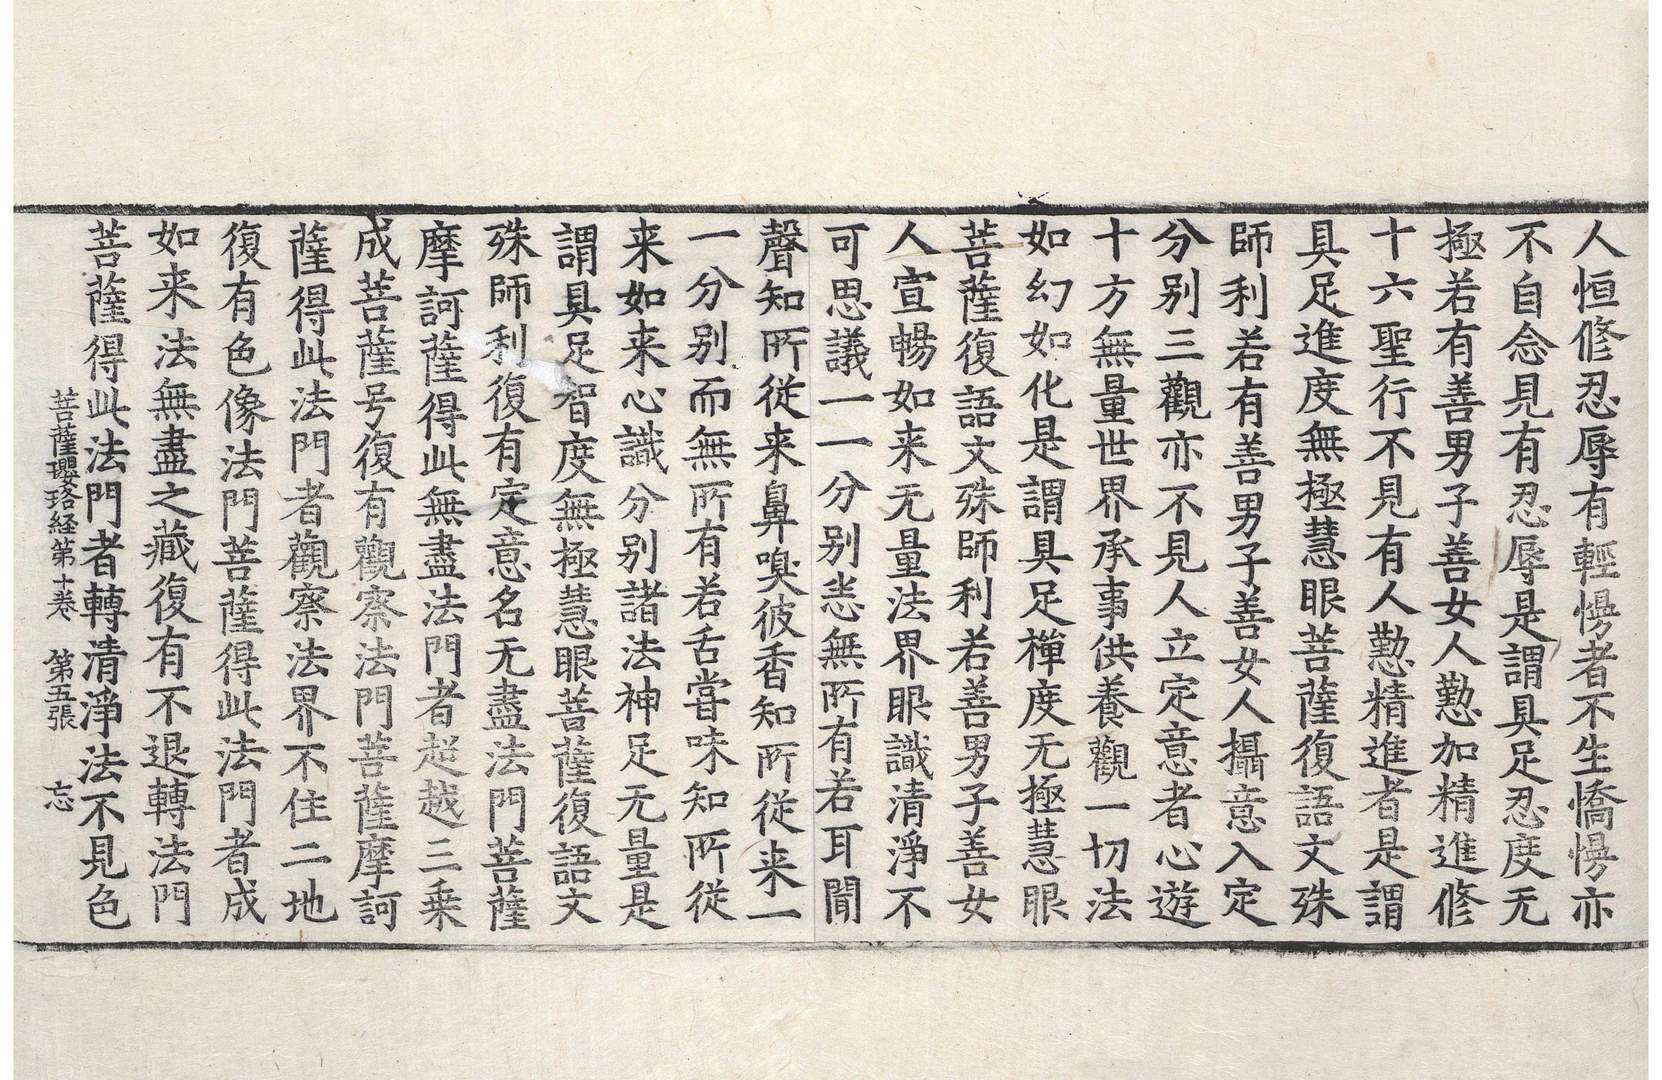 人恒修忍辱有輕慢者不生憍慢亦
不自念見有忍辱是謂具足忍度无
極若有善男子善女人懃加精進修
十六聖行不見有人懃精進者是謂
具足進度無極慧眼菩薩復語文殊
師利若有善男子善女人攝意入定
分別三觀亦不見人立定意者心遊
十方無量世界承事供養觀一切法
如幻如化是謂具足禪度无極慧眼
菩薩復語文殊師利若善男子善女
人宣暢如来无量法界眼識清淨不
可思議一一分別悉無所有若耳聞
聲知所従来鼻嗅彼香知所従来一
一分別而無所有若舌嘗味知所従
来如来心識分別諸法神足无量是
謂具足智度無極慧眼菩薩復語文
殊師利復有定意名无盡法門菩薩
摩訶薩得此無盡法門者超越三乗
成菩薩号復有觀察法門菩薩摩訶
薩得此法門者觀察法界不住二地
復有色像法門菩薩得此法門者成
如来法無盡之藏復有不退轉法門
菩薩得此法門者轉清淨法不見色
菩薩瓔珞経第十卷 第五張 忘